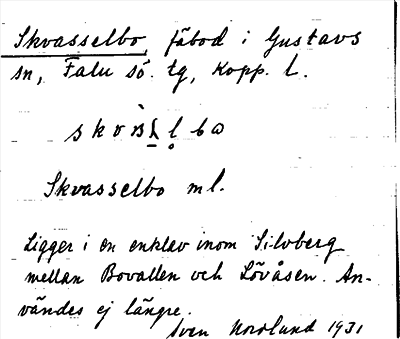 Skvasselbo, fäbod i Gustavs
sn, Falu sö. tg, Kopp. L.
Skvasselbo ml.
Ligger i en enklav inom Silvberg
mellan Bovallen och Lövåsen. An-
vändes ej längre.
Sven Norlund 1931